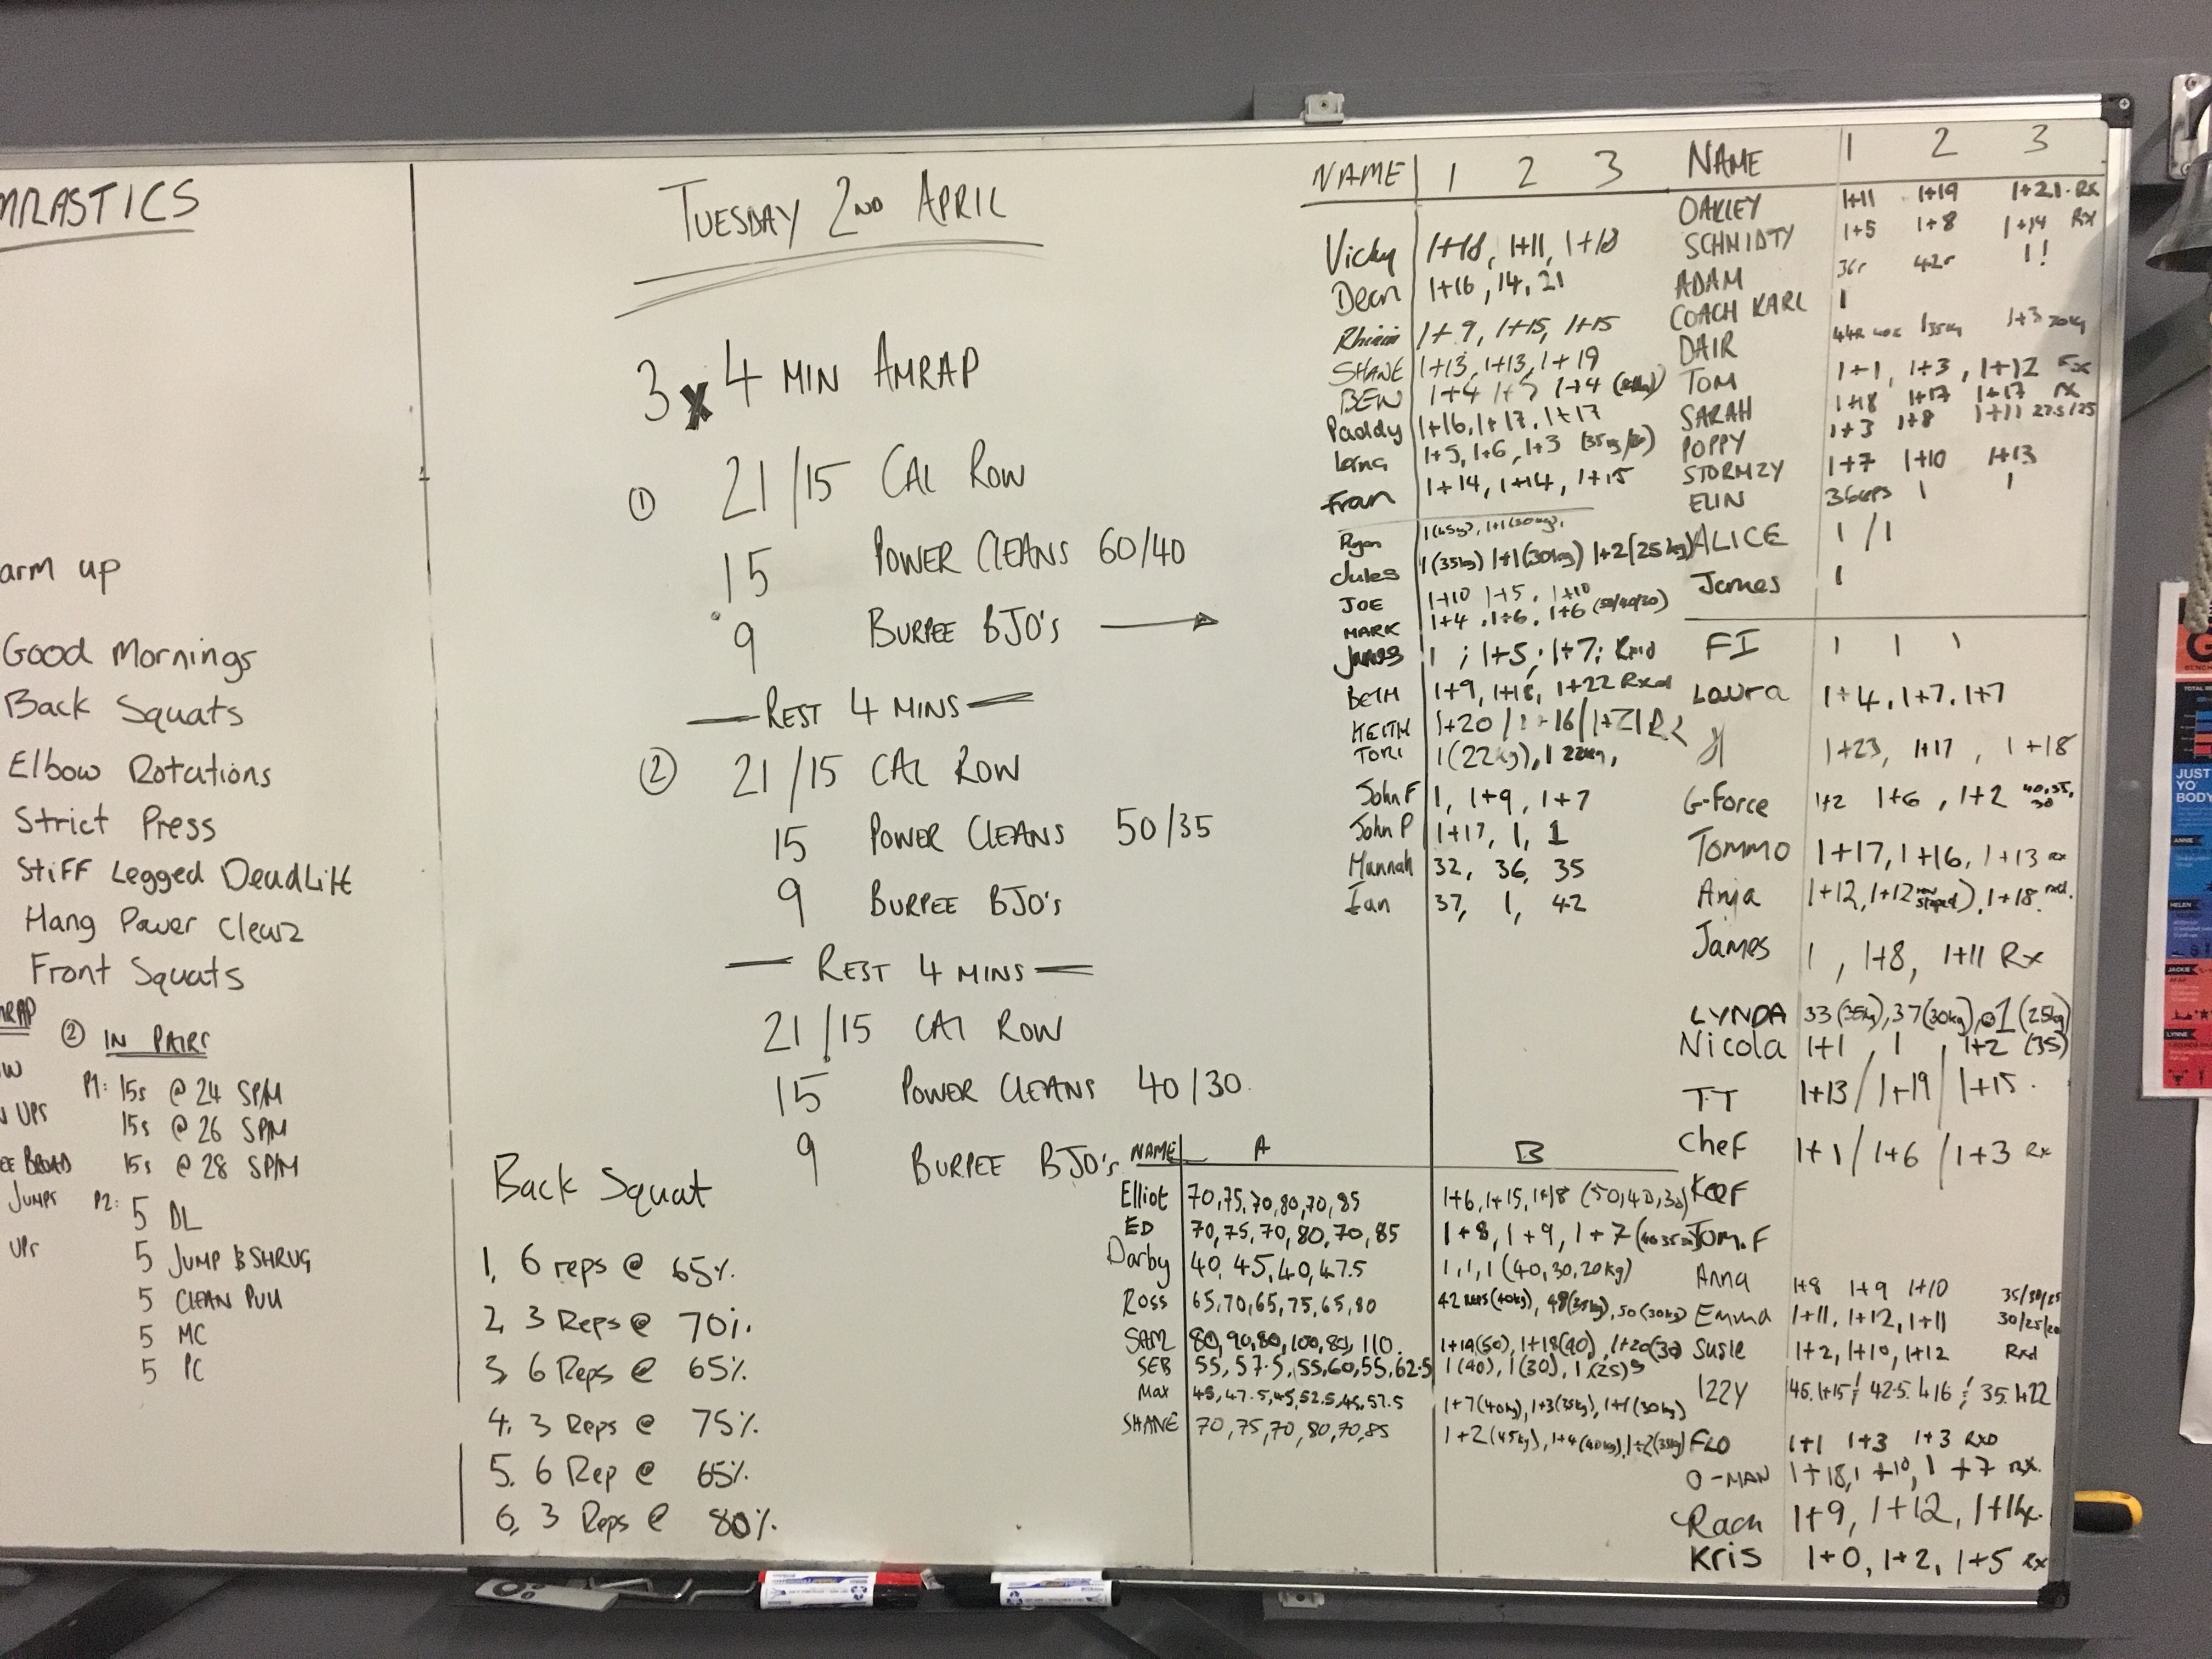 MNASTICS
arm up
Good Mornings
Back Squats
Elbow Rotations
Strict Press
Stiff Legged Deadlift
Hang Power Clean
Front Squats
MRAP
② IN PAIRS
P1: 15s @ 24 SPM
UPs 15s @ 26 SPM
BROAD 15s @ 28 SPM
JUMPS P2: 5 DL
UPs 5 JUMP & SHRUG
5 CLEAN PULL
5 MC
5 PC
TUESDAY 2ND APRIL
3 x 4 MIN AMRAP
① 21/15 CAL ROW
15 POWER CLEANS 60/40
9 BURPEE BJO's →
— REST 4 MINS —
② 21/15 CAL ROW
15 POWER CLEANS 50/35
9 BURPEE BJO's
— REST 4 MINS —
21/15 CAL ROW
15 POWER CLEANS 40/30
9 BURPEE BJO's
Back Squat
1, 6 reps @ 65%
2, 3 Reps @ 70%
3, 6 Reps @ 65%
4, 3 Reps @ 75%
5, 6 Rep @ 65%
6, 3 Reps @ 80%
NAME 1 2 3
Vicky 1+18, 1+11, 1+18
Dean 1+16, 14, 21
1+9, 1+15, 1+15
SHANE 1+13, 1+13, 1+19
BEN 1+4 1+5 1+4
Paddy 1+16, 1+17, 1+17
Lorna 1+5, 1+6, 1+3
Fran 1+14, 1+14, 1+15
Ryan
Jules 1(35kg) 1+1(30kg) 1+2(25kg)
JOE 1+10 1+5, 1+10
MARK 1+4, 1+6, 1+6 (50/40/20)
James 1 ; 1+5; 1+7;
BETH 1+9, 1+18, 1+22 Rxd
KEITH 1+20 / 1+16 / 1+21 Rx
TORI 1(22kg), 1 22kg,
John F 1, 1+9, 1+7
John P 1+17, 1, 1
Hannah 32, 36, 35
Ian 37, 1, 42
NAME A B
Elliot 70,75,70,80,70,85 1+6, 1+15, 1+18 (50,40,30)
ED 70,75,70,80,70,85 1+8, 1+9, 1+7
Darby 40,45,40,47.5 1,1,1 (40,30,20kg)
Ross 65,70,65,75,65,80 42 REPS (40kg), 48(35kg), 50(30kg)
SAM 80,90,80,100,80,110. 1+19(50), 1+18(40), 1+20(30)
SEB 55,57.5,55,60,55,62.5 1(40), 1(30), 1(25)
Max 45,47.5,45,52.5,45,57.5 1+7(40kg), 1+3(35kg), 1+1(30kg)
SHANE 70,75,70,80,70,85 1+2(45kg), 1+4(40kg), 1+2(35kg)
NAME 1 2 3
OAKLEY 1+11 1+19 1+21. Rx
SCHMIDTY 1+5 1+8 1+14 Rx
ADAM 36r 42r 1!
COACH KARL 1
DAIR 1 35kg 1+3
TOM 1+1, 1+3, 1+12 Rx
SARAH 1+18 1+17 1+17 Rx
POPPY 1+3 1+8 1+11 27.5/25
STORMZY 1+7 1+10 1+13
ELIN 36reps 1 1
ALICE 1 / 1
James 1
FI 1 1 1
Laura 1+4, 1+7, 1+7
1+23, 1+17, 1+18
G-Force 1+2 1+6, 1+2 40,35,30
Tommo 1+17, 1+16, 1+13 Rx
Anja 1+12, 1+12 1+18 rxd.
James 1, 1+8, 1+11 Rx
LYNDA 33(35kg), 37(30kg), 1(25kg)
Nicola 1+1, 1, 1+2 (35)
TT 1+13 / 1+19 / 1+15.
Chef 1+1 / 1+6 / 1+3 Rx
Tom.F
Anna 1+8 1+9 1+10 35/30/25
Emma 1+11, 1+12, 1+11 30/25/20
Susie 1+2, 1+10, 1+12 Rxd
IZZY
FLO 1+1 1+3 1+3 RXD
O-MAN 1+18, 1+10, 1+7 Rx.
Rach 1+9, 1+12,
Kris 1+0, 1+2, 1+5 Rx
JUST
YO
BODY
ANNIE
HELEN
JACKIE
LYNNE